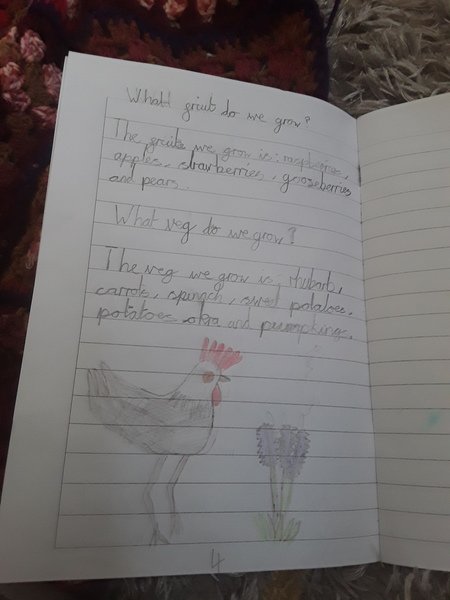 Whatt griut do we grow?
The gruits we grow is: raspberries,
apples, strawberries, gooseberries
and pears.
What veg do we grow?
The veg we grow is, rhubarb,
carrots, spinach, sweet potatoes,
potatoes okra and pumpkings.
4